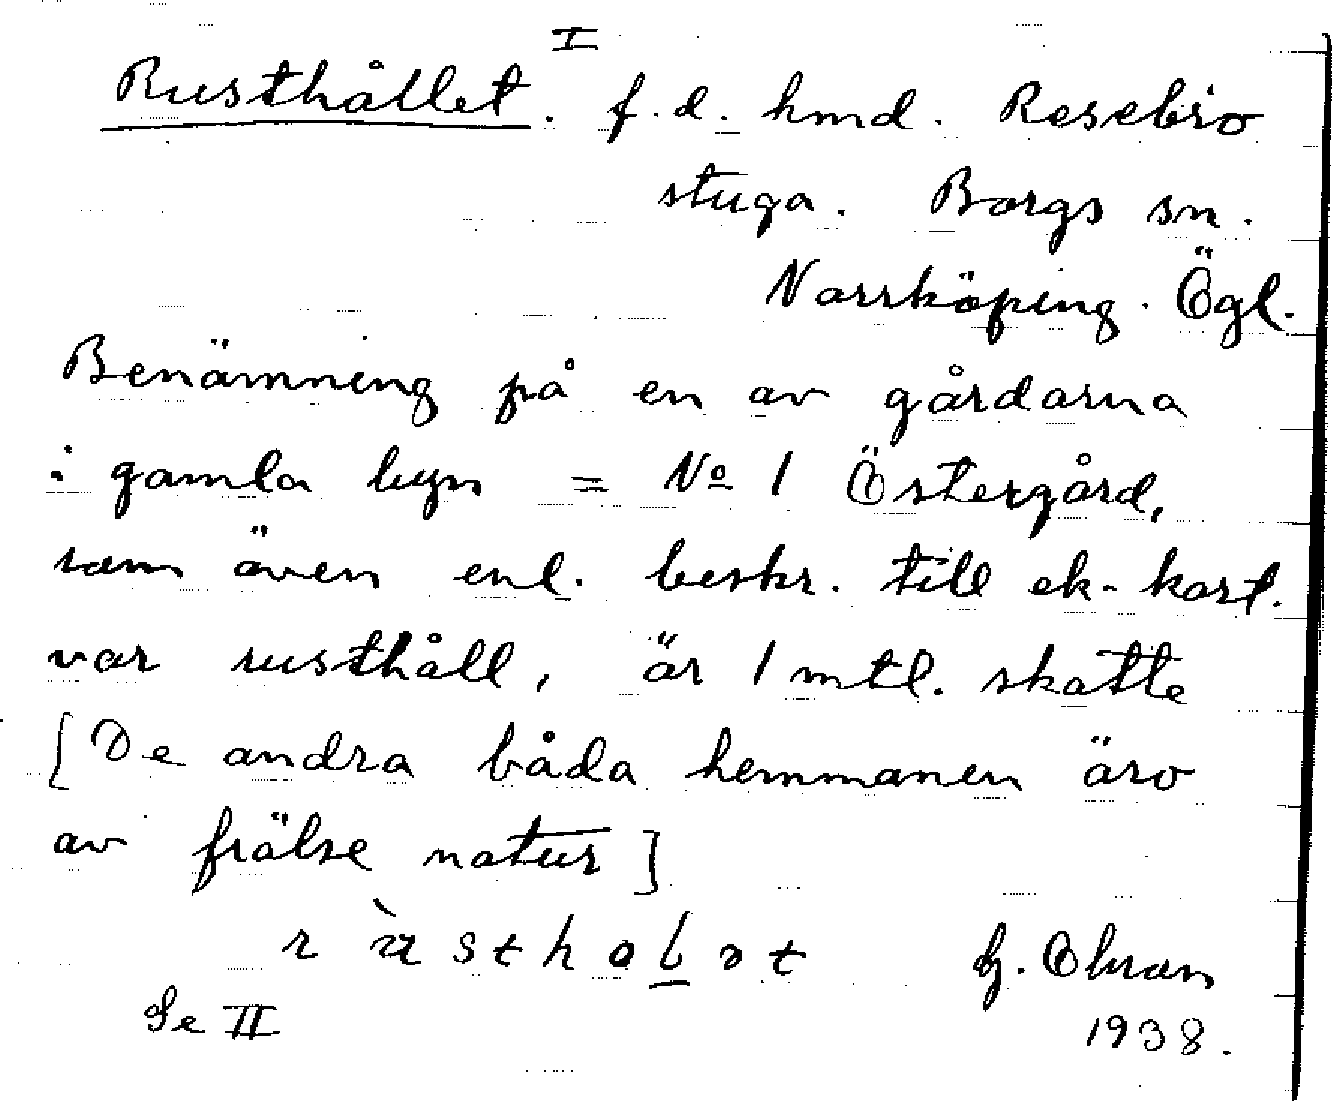 I
Rusthållet. f.d. hmd. Resebro
stuga. Borgs sn.
Norrköping. Ögl.
Benämning på en av gårdarna
i gamla byn = No 1 Östergård,
som även enl. beskr. till ek-kart.
var rusthåll, är 1 mtl. skatte
[De andra båda hemmanen äro
av frälse natur]
1938.
Se II